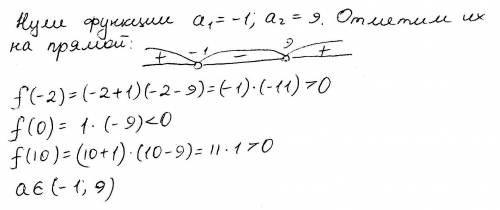 Нули функции a₁ = -1; a₂ = 9. Отметим их
на прямой: + -1 - 9 +
f(-2) = (-2+1)(-2-9) = (-1)·(-11) > 0
f(0) = 1·(-9) < 0
f(10) = (10+1)·(10-9) = 11·1 > 0
a ∈ (-1; 9)